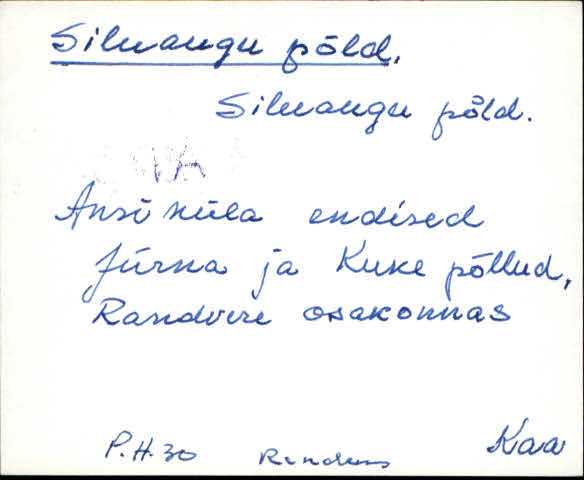 Silmaugu põld.
Silmaugu põld.
Ansi küla endised
Jürna ja Kuke põllud,
Randvere osakonnas
P.H. 30 Kaa